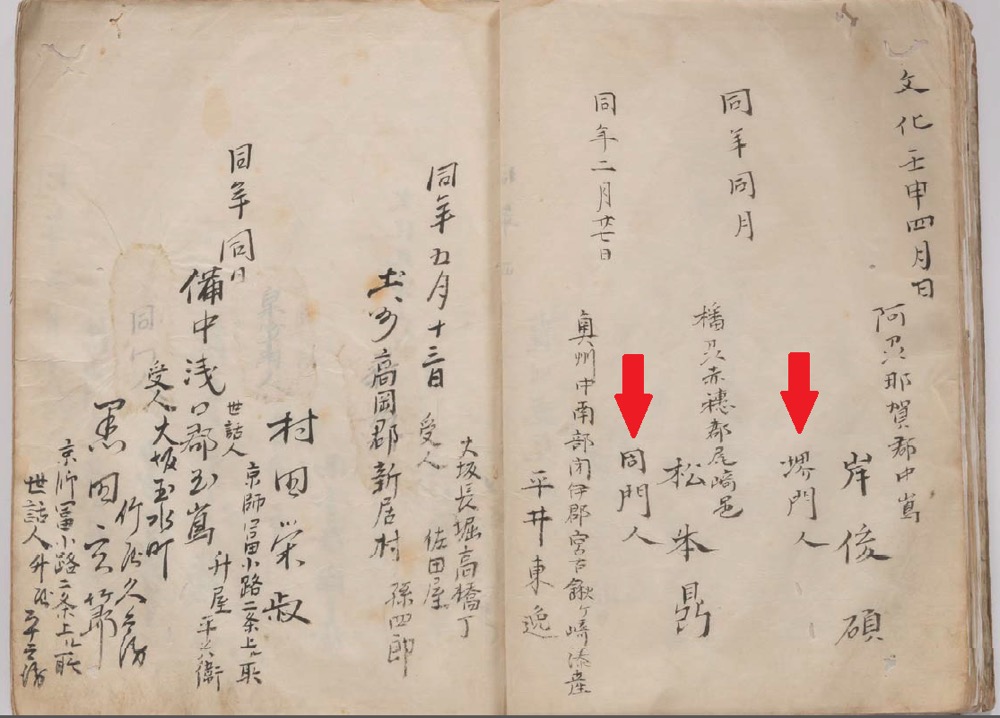 文化壬申四月
阿州那賀郡中嶌
岸俊碩
堺門人
同年同月
播州赤穂郡尾崎邑
松本鼎
同門人
同年二月廿七日
奥州中南部閉伊郡宮古鍬ヶ崎湊産
平井東逸
同年五月十三日
受人
大坂長堀高橋丁
佐田屋
孫四郎
土州高岡郡新居村
村田栄叔
世話人
京師冨小路二条上ル町
升屋平兵衛
同年同日
備中浅口郡玉嶌
受人大坂玉水町
竹屋久兵衛
黒田玄竹
世話人升屋平兵衛
京師冨小路二条上ル町